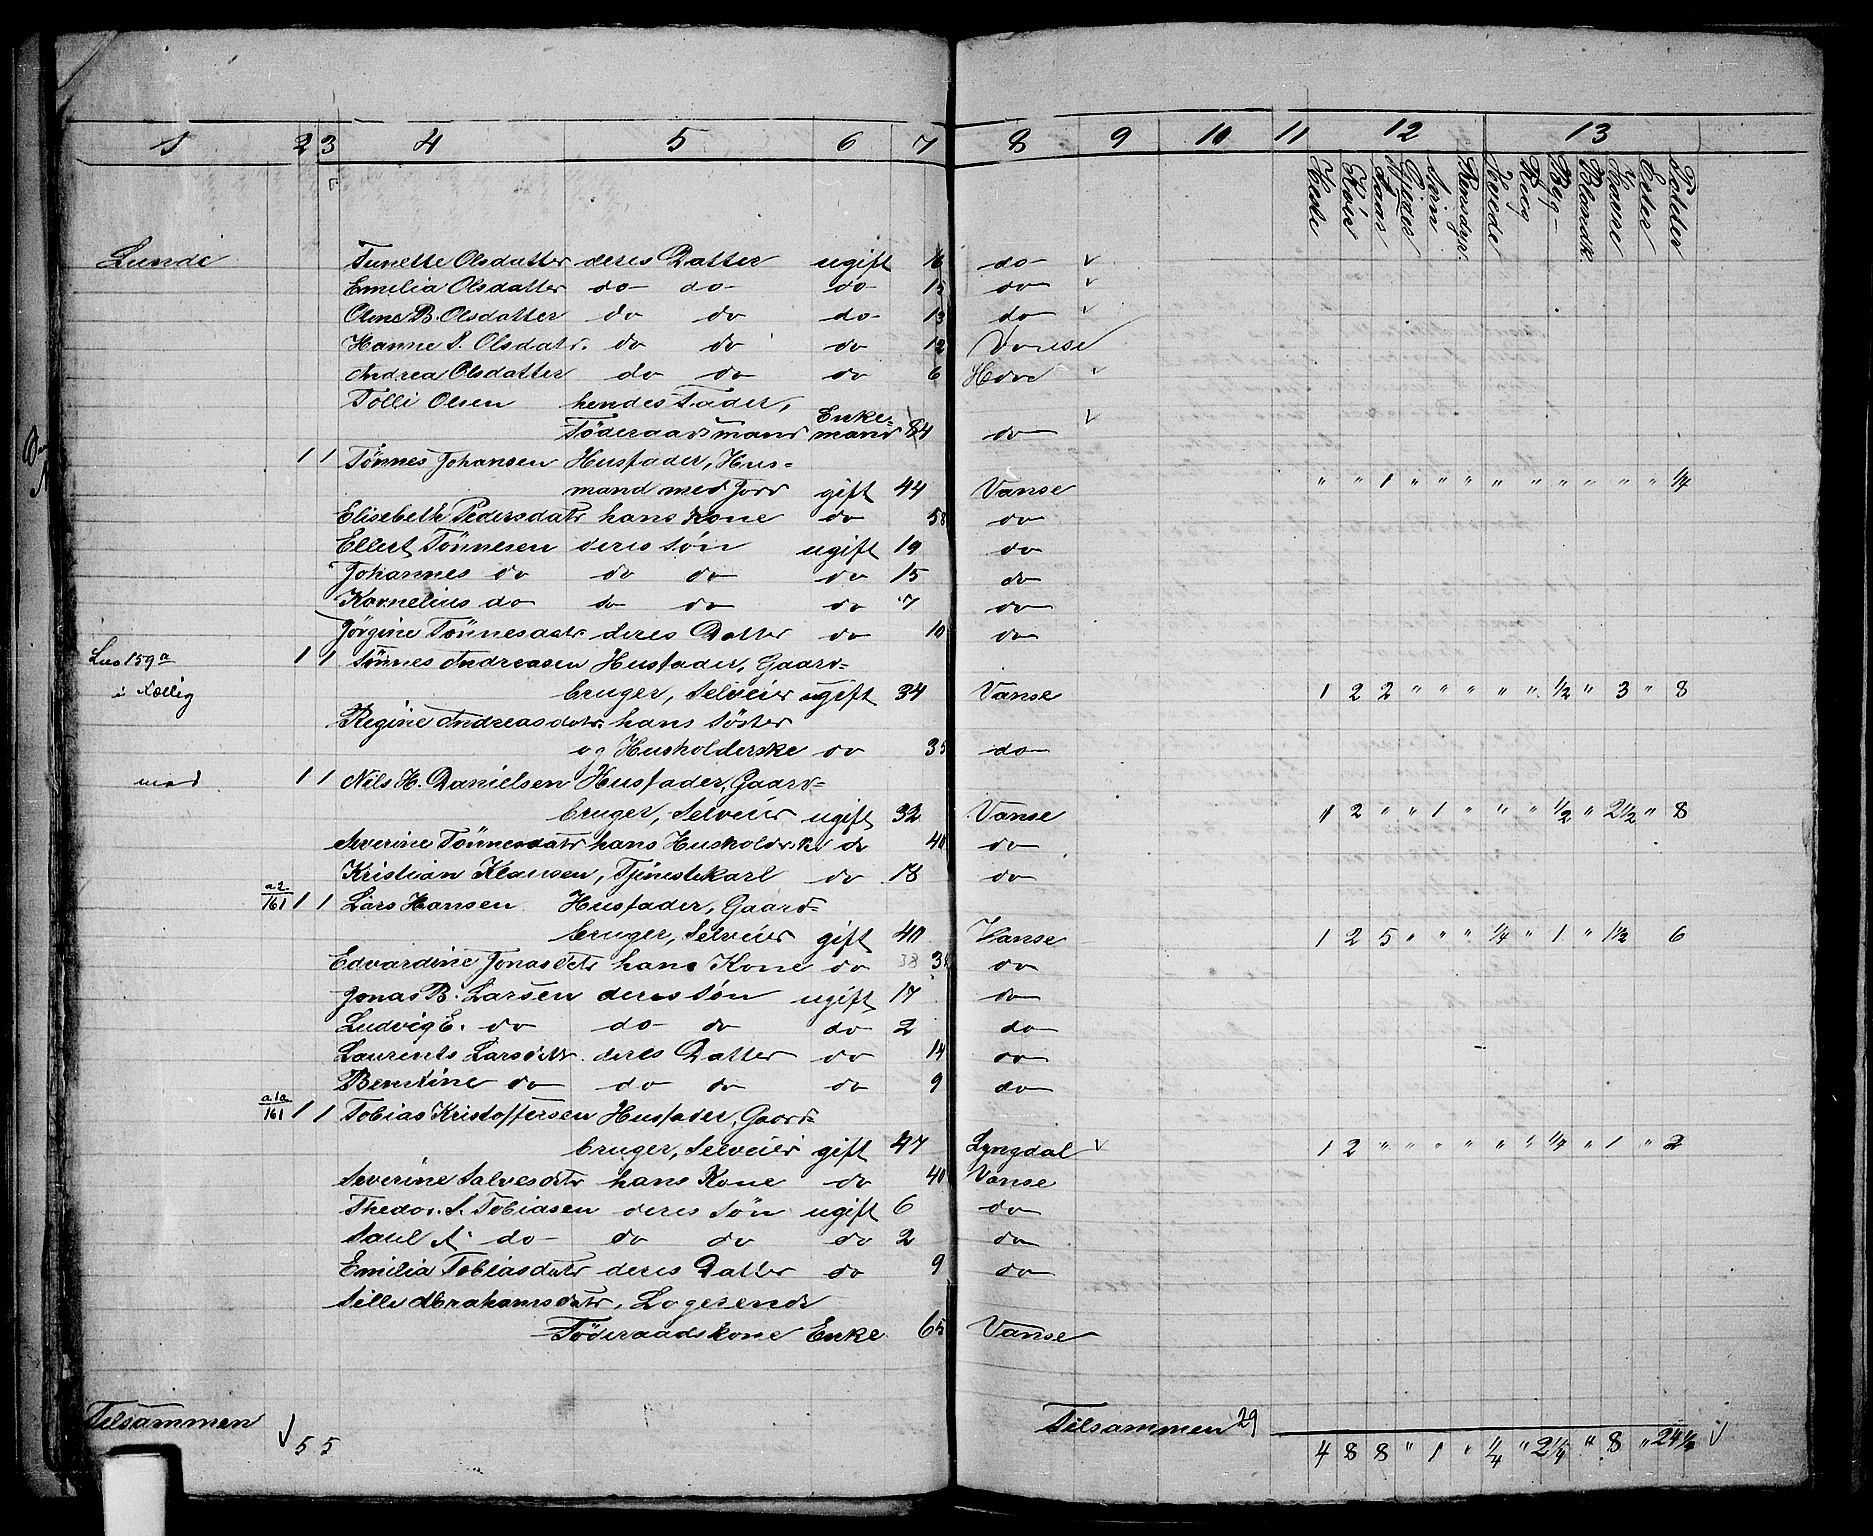 1 2 3 4 5 6 7 8 9 10 11 12 13
Heste Køer Faar Gjeder Svin Rensdyr Hvede Rug Byg Blandk Havre Erter Poteter
Lunde Tunette Olsdatter deres Datter ugift 16 do
Emilia Olsdatter do do do 15 do
Oline B. Olsdatter do do do 13 do
Hanne S. Olsdatr. do do do 12 Vanse
Andrea Olsdatter do do do 6
Tolli Olsen hendes Fader,
Føderaadsmand Enke=
mand 84 do
1 1 Tønnes Johansen Husfader, Hus=
mand med Jord gift 44 Vanse " " 1 " " " " " " " " " 1/4
Elisabeth Pedersdatr hans Kone do 58 do
Ellert Tønnesen deres Søn ugift 19 do
Johannes do do do do 15 do
Kornelius do do do do 7 do
Jörgine Tønnesdatr deres Datter do 10 do
159a 1 1 Tønnes Andreasen Husfader, Gaard=
bruger, Selveier ugift 34 Vanse 1 2 2 " " " " " 1/2 " 3 " 8
Regine Andreasdatr. hans Söster
og Husholderske do 35 do
1 1 Nils H. Danielsen Husfader, Gaard=
bruger, Selveier ugift 32 Vanse 1 2 " " 1 " " " 1/2 " 2 1/2 " 8
Severine Tönnesdatr hans Husholdrske do 40 do
Kristian Klausen, Tjenestekarl do 18 do
a2/161 1 1 Lars Hansen Husfader, Gaard=
bruger, Selveier gift 40 Vanse 1 2 5 " " " 1/4 " 1 " 1 1/2 6
Edvardine Jonasdtr hans Kone do 38 do
Jonas B. Larsen deres Søn ugift 17 do
Ludvig E. do do do do 2 do
Laurents Larsdtr. deres Datter do 14 do
Berntine do do do do 9 do
a1a/161 1 1 Tobias Kristoffersen Husfader, Gaard=
bruger, Selveier gift 47 Lyngdal 1 2 " " " " " " 1/4 " 1 " 2
Severine Salvesdtr hans Kone do 40 Vanse
Thedor. S. Tobiasen deres Søn ugift 6 do
Saul A. do do do do 2 do
Emilia Tobiasdatr deres Datter do 9 do
Silli Abrahamsdatr, Logerende
Föderaadskone Enke 65 Vanse
Tilsammen 5 5 Tilsammen 29
4 8 8 " 1 " 1/4 " 2 1/4 " 8 " 24 1/4